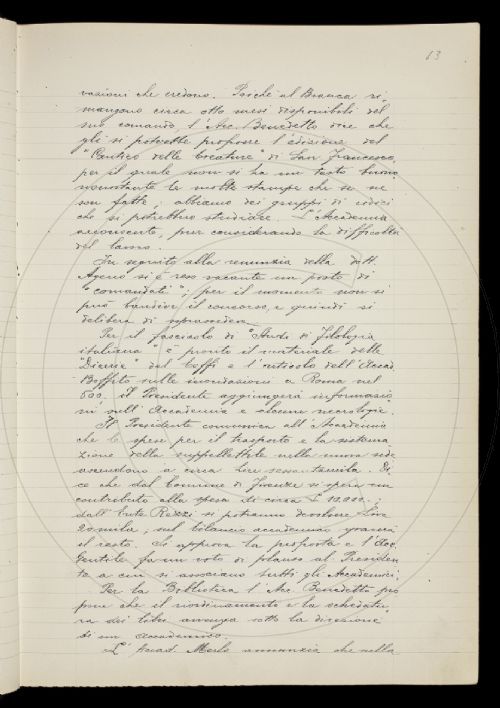 13
vazioni che credono. Poiché al Branca ri-
mangono circa otto mesi disponibili del
suo comando, l'Acc. Benedetto dice che
gli si potrebbe proporre l'edizione del
"Cantico delle creature" di San Francesco,
per il quale non si ha un testo buono
nonostante le molte stampe che se ne
son fatte; abbiamo dei gruppi di codici
che si potrebbero studiare. L'Accademia
acconsente, pur considerando la difficoltà
del lavoro.
In seguito alla renunzia della dott.
Ageno si è reso vacante un posto di
"comandati"; per il momento non si
può bandire il concorso, e quindi si
delibera di soprassedere.
Per il fascicolo di "Studi di filologia
italiana" è pronto il materiale delle
"Dicerie" del Ceffi e l'articolo dell'Accad.
Boffito sulle inondazioni a Roma nel
600. il Presidente aggiungerà informazio
ni sull'Accademia e alcune necrologie.
Il Presidente comunica all'Accademia
che le spese per il trasporto e la sistema
zione della suppellettile nella nuova sede
ascendono a circa lire sessantamila. Di
ce che dal Comune di Firenze si spera un
contributo alla spesa di circa £ 10.000.;
dall'Ente Rezzi si potranno devolvere Lire
20mila; sul bilancio accademico graverà
il resto. Si approva la proposta e l'Acc.
Gentile fa un voto di plauso al Presiden
te a cui si associano tutti gli Accademici.
Per la Biblioteca l'Acc. Benedetto pro
pone che il riordinamento e la schedatu
ra dei libri avvenga sotto la direzione
di un accademico.
L'Accad. Merlo annunzia che nella